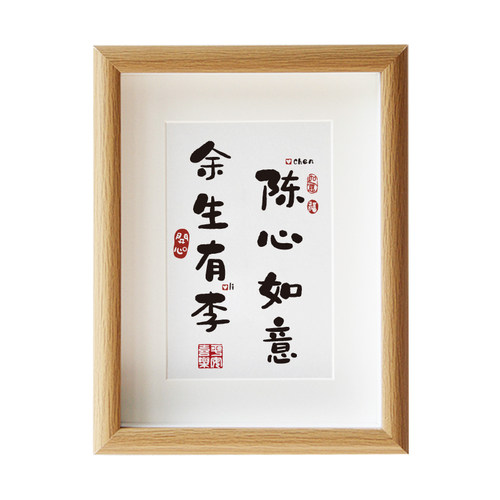 陈心如意
chen
余生有李
li
開心